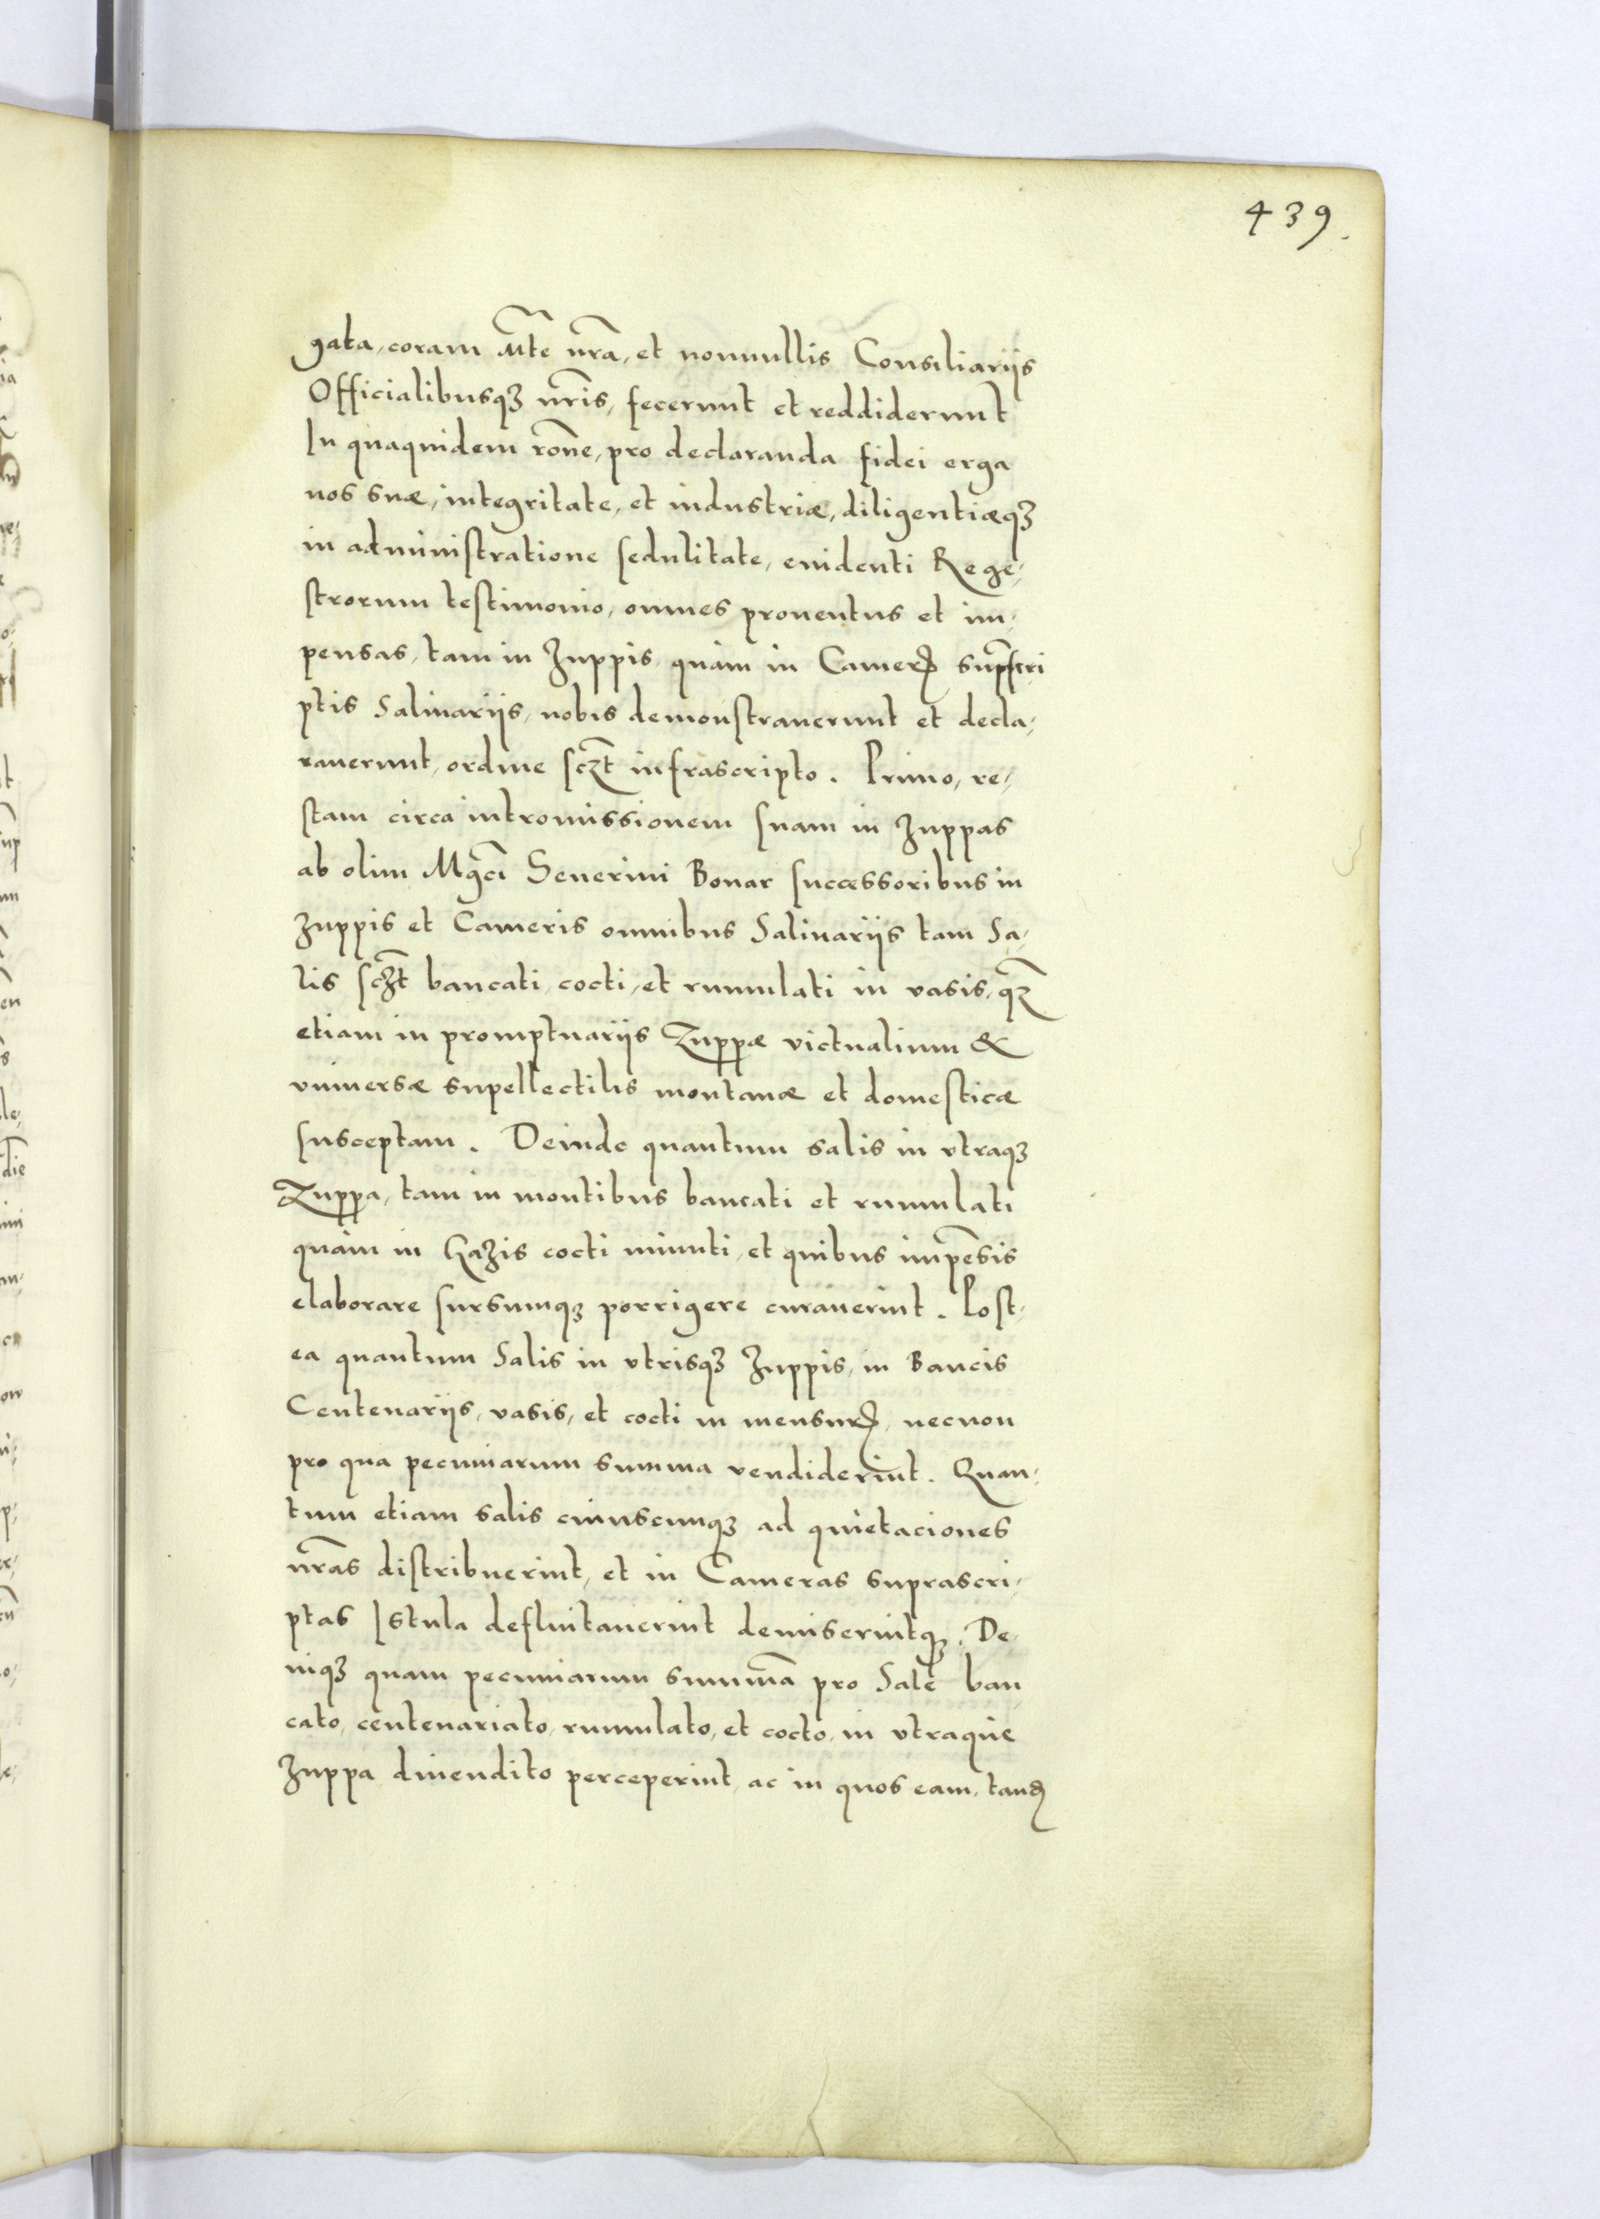 439.
gata, coram Mte nra, et nonnullis Consiliariis
Officialibusqꝫ nris, fecerunt et reddiderunt
In quaquidem rone, pro declaranda fidei erga
nos suæ, integritate, et industriæ, diligentiæqꝫ
in administratione sedulitate, euidenti Rege-
strorum testimonio, omnes prouentus et im-
pensas, tam in Zuppis, quàm in Camerꝭ supscri
ptis Salinariis, nobis demonstrauerunt et decla-
rauerunt, ordine sczt infrascripto. Primo, re-
stam circa intromissionem suam in Zuppas
ab olim Mgci Seuerini Bonar successoribus in
Zuppis et Cameris omnibus Salinariis tam Sa-
lis sczt bancati, cocti, et rumulati in vasis, qꝫ
etiam in promptuariis Zuppæ victualium &
vniuersæ supellectilis montanæ et domesticæ
susceptam. Deinde quantum salis in vtraqꝫ
Zuppa, tam in montibus bancati et rumulati
quàm in Gazis cocti minuti, et quibus impesis
elaborare sursumqꝫ porrigere curauerint. Post-
ea quantum Salis in vtrisqꝫ Zuppis, in Bancis
Centenariis, vasis, et cocti in mensurꝭ, necnon
pro qua pecuniarum summa vendiderint. Quan-
tum etiam salis cuiuscunqꝫ ad quietaciones
nras distribuerint, et in Cameras suprascri-
ptas Istula defluitauerint demiserintqꝫ. De-
niqꝫ quam pecuniarum summa pro Sale ban
cato, centenariato, rumulato, et cocto, in vtraque
Zuppa diuendito perceperint, ac in quos eam, tanꝗ